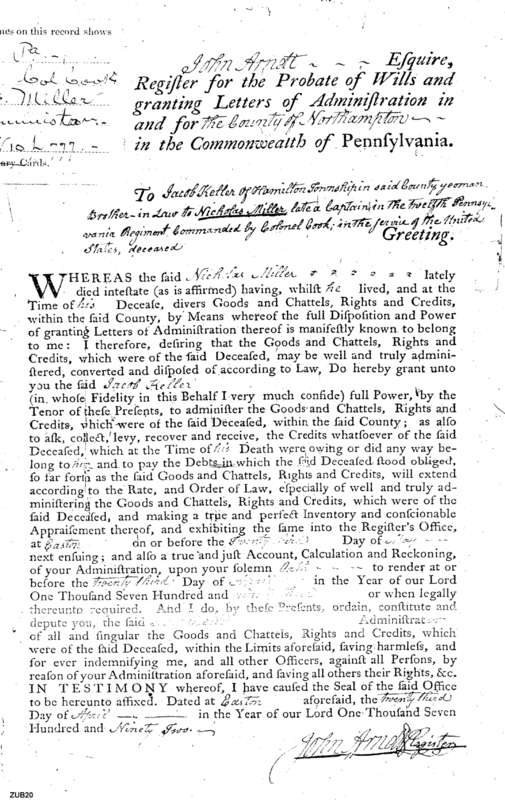 nes on this record shows
Pa
Col Cook
Miller
ministor.
ary Cards.
John Arndt - - - Esquire,
Regiſter for the Probate of Wills and
granting Letters of Adminiſtration in
and for the County of Northampton
in the Commonwealth of Pennſylvania.
To Jacob Keller of Hamilton Township in said County yeoman
Brother-in Law to Nicholas Miller late a Captain in the twelfth Pennsyl
vania Regiment Commanded by Colonel Cook; in the Service of the United
States, deceased
Greeting.
WHEREAS the ſaid Nicholas Miller lately
died inteſtate (as is affirmed) having, whilſt he lived, and at the
Time of his Deceaſe, divers Goods and Chattels, Rights and Credits,
within the ſaid County, by Means whereof the full Diſpoſition and Power
of granting Letters of Adminiſtration thereof is manifeſtly known to belong
to me: I therefore, deſiring that the Goods and Chattels, Rights and
Credits, which were of the ſaid Deceaſed, may be well and truly admini-
ſtered, converted and diſpoſed of according to Law, Do hereby grant unto
you the ſaid Jacob Keller
(in whoſe Fidelity in this Behalf I very much confide) full Power, by the
Tenor of theſe Preſents, to adminiſter the Goods and Chattels, Rights and
Credits, which were of the ſaid Deceaſed, within the ſaid County; as alſo
to aſk, collect, levy, recover and receive, the Credits whatſoever of the ſaid
Deceaſed, which at the Time of his Death were owing or did any way be-
long to him and to pay the Debts in which the ſaid Deceaſed ſtood obliged,
ſo far forth as the ſaid Goods and Chattels, Rights and Credits, will extend
according to the Rate, and Order of Law, eſpecially of well and truly ad-
miniſtering the Goods and Chattels, Rights and Credits, which were of the
ſaid Deceaſed, and making a true and perfect Inventory and conſcionable
Appraiſement thereof, and exhibiting the ſame into the Regiſter's Office,
at Easton on or before the Twenty third Day of May
next enſuing; and alſo a true and juſt Account, Calculation and Reckoning,
of your Adminiſtration, upon your ſolemn Oath - - - to render at or
before the twenty third Day of April in the Year of our Lord
One Thouſand Seven Hundred and or when legally
thereunto required. And I do, by theſe Preſents, ordain, conſtitute and
depute you, the ſaid Adminiſtrator
of all and ſingular the Goods and Chattels, Rights and Credits, which
were of the ſaid Deceaſed, within the Limits aforeſaid, ſaving harmleſs, and
for ever indemnifying me, and all other Officers, againſt all Perſons, by
reaſon of your Adminiſtration aforeſaid, and ſaving all others their Rights, &c.
IN TESTIMONY whereof, I have cauſed the Seal of the ſaid Office
to be hereunto affixed. Dated at Easton aforeſaid, the twenty third
Day of April in the Year of our Lord One Thouſand Seven
Hundred and Ninety Two.
John Arndt Register
ZUB20